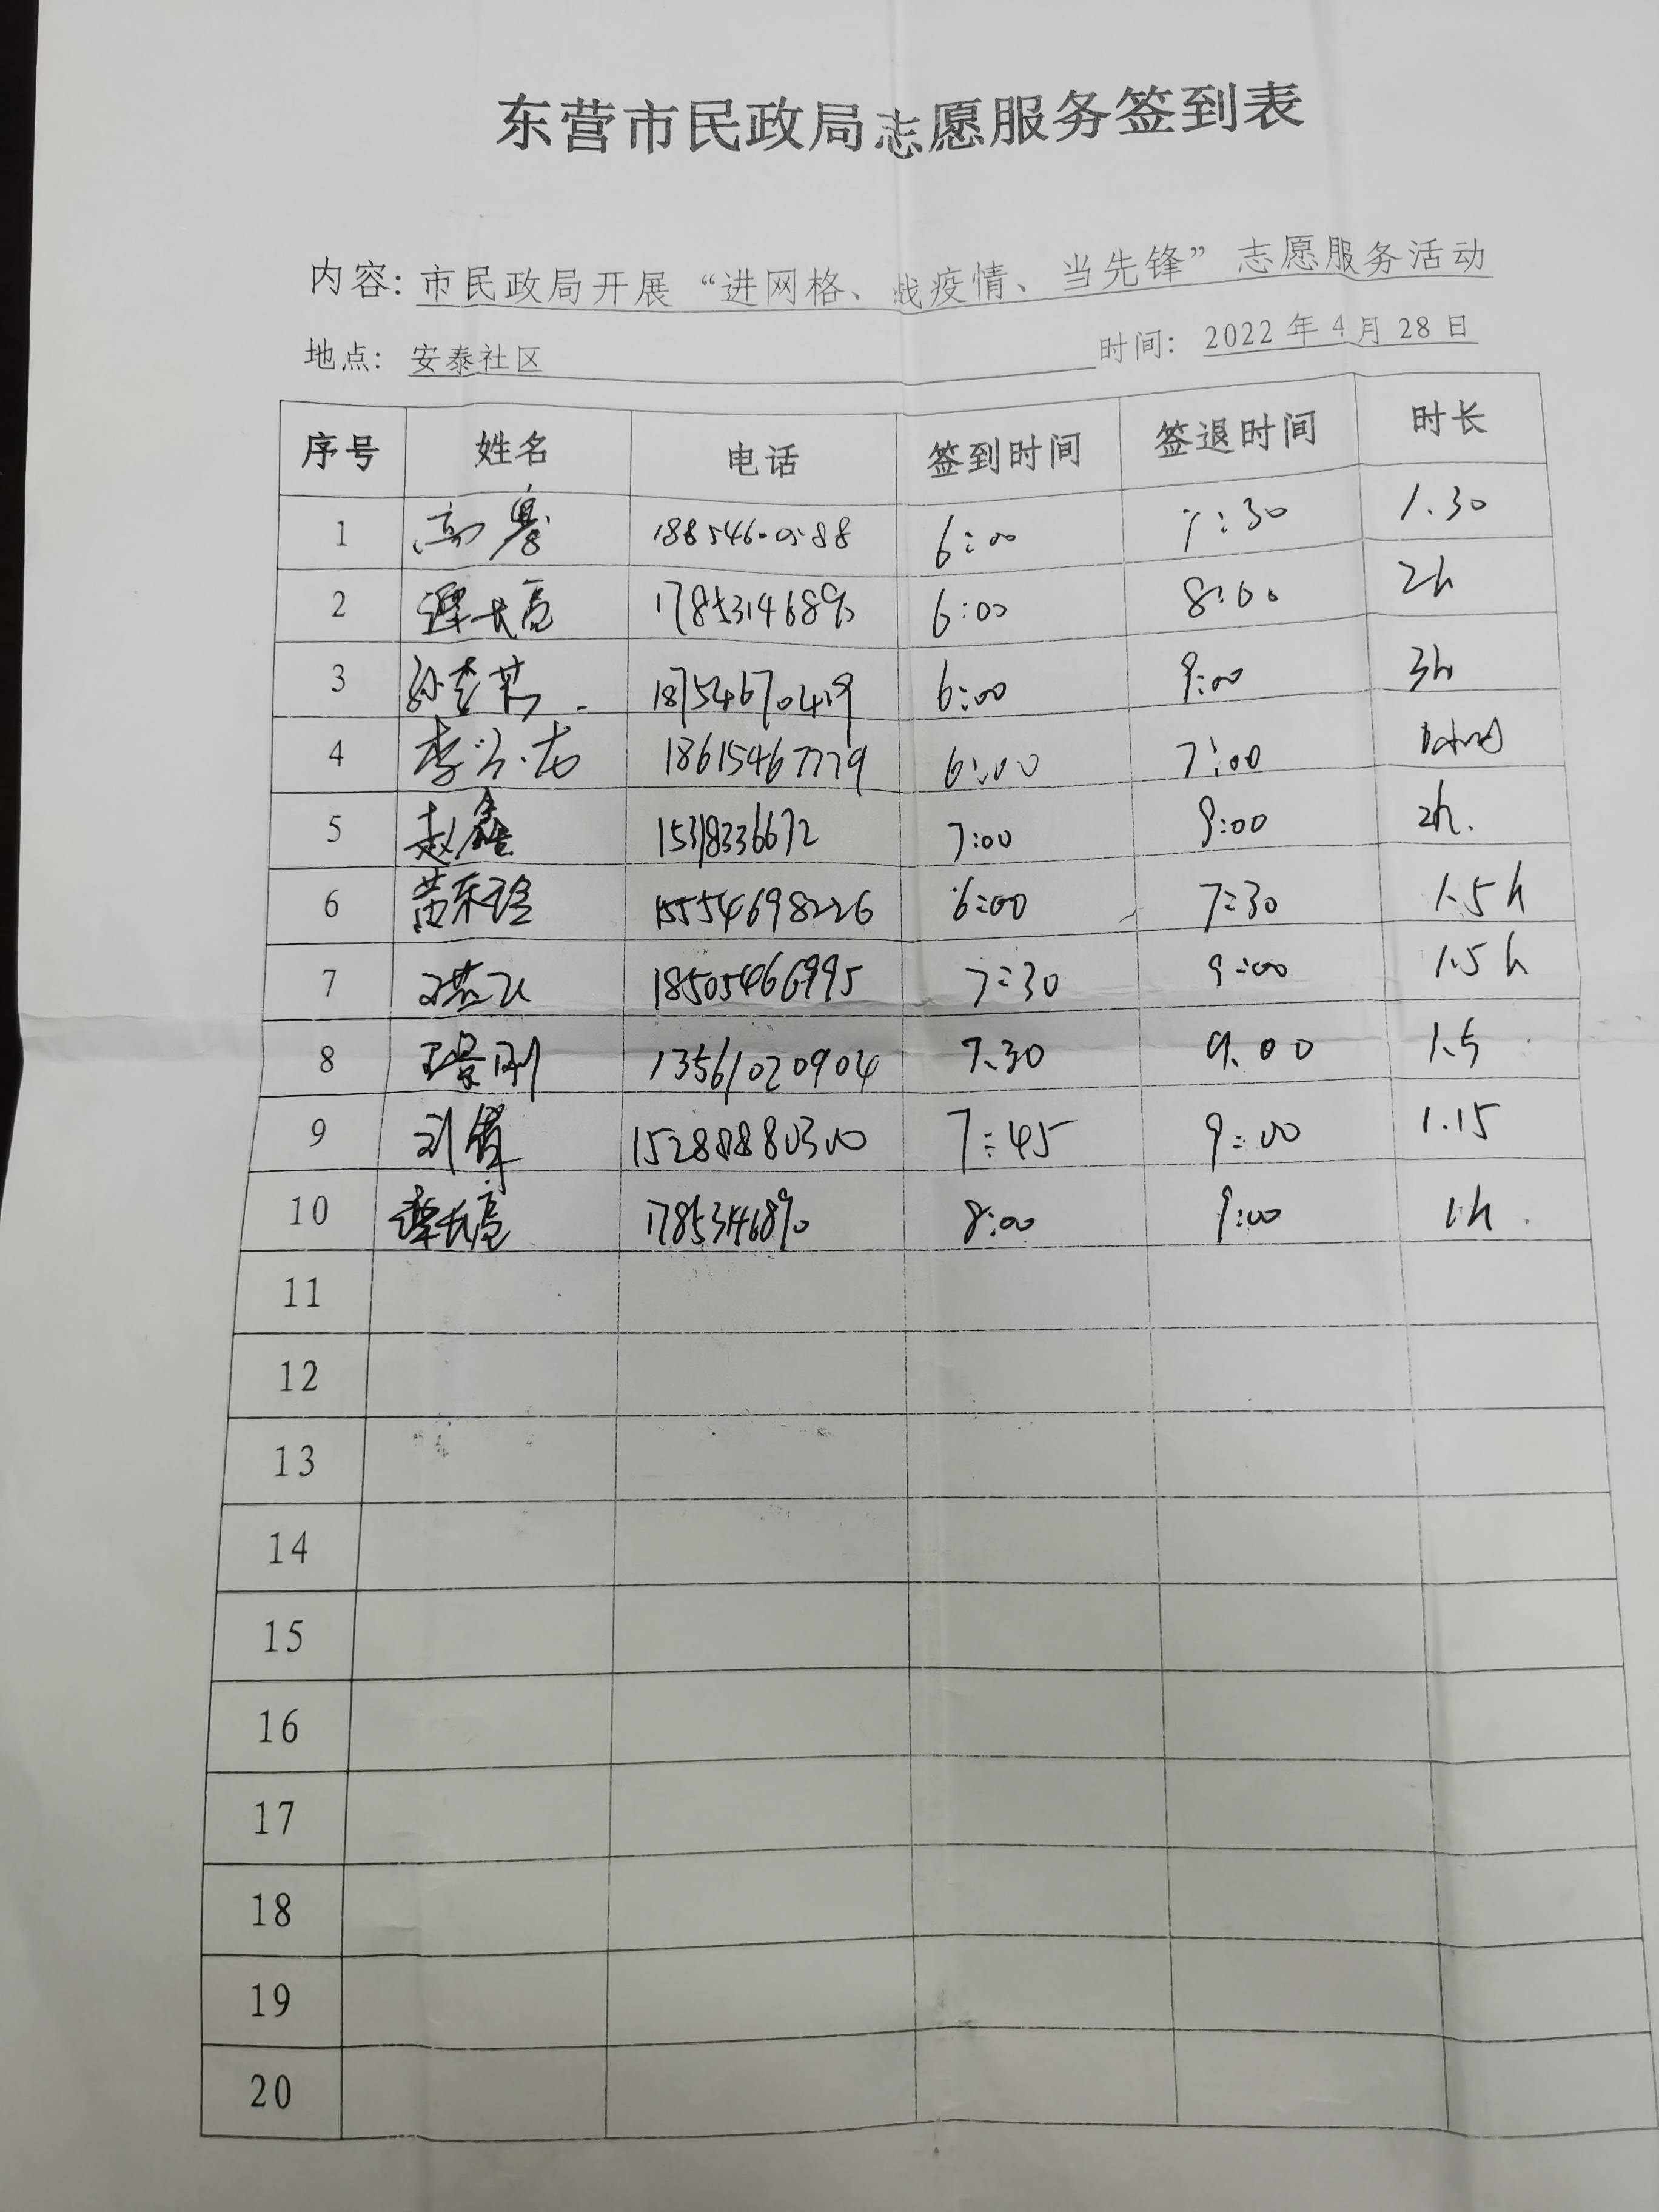 东营市民政局志愿服务签到表
内容：市民政局开展“进网格、战疫情、当先锋”志愿服务活动
地点：安泰社区 时间：2022年4月28日
序号 姓名 电话 签到时间 签退时间 时长
1 高 6:00 7:30 1.30
2 谭长亮 17853146890 6:00 8:00 2h
3 孙 18754670419 6:00 9:00 3h
4 李 18615467779 6:00 7:00
5 赵鑫 15318336672 7:00 9:00 2h.
6 苗乐 15554698226 6:00 7:30 1.5h
7 18505466995 7:30 9:00 1.5h
8 王景刚 13561020904 7:30 9:00 1.5
9 刘 15288880300 7:45 9:00 1.15
10 谭长亮 17853146890 8:00 9:00 1h.
11
12
13
14
15
16
17
18
19
20